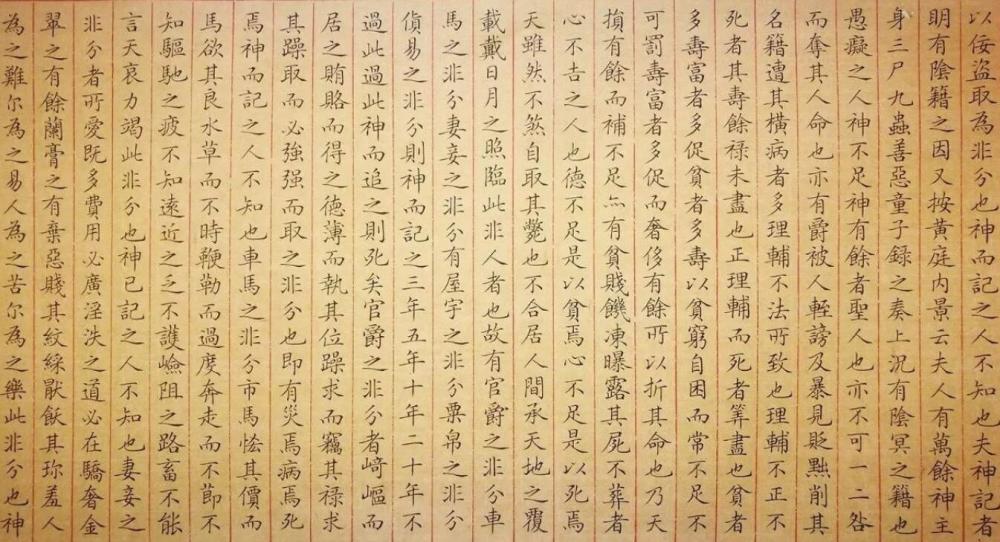 以佞盜取為非分也神而記之人不知也夫神記者
明有陰籍之因又按黃庭內景云夫人有萬餘神主
身三尸九蟲善惡童子録之奏上況有陰冥之籍也
愚癡之人神不足神有餘者聖人也亦不可一二咎
而奪其人命也亦有爵被人輊謗及暴見貶黜削其
名籍遭其橫病者多理輔不法所致也理輔不正不
死者其壽餘禄未盡也正理輔而死者筭盡也貧者
多壽富者多促貧者多壽以貧窮自困而常不足不
可罰壽富者多促而奢侈有餘所以折其命也乃天
損有餘而補不足亦有貧賤饑凍曝露其屍不葬者
心不吉之人也德不足是以貧焉心不足是以死焉
天雖然不煞自取其斃也不合居人間承天地之覆
載戴日月之照臨此非人者也故有官爵之非分車
馬之非分妻妾之非分有屋宇之非分粟帛之非分
貨易之非分則神而記之三年五年十年二十年不
過此過此神而追之則死矣官爵之非分者﨑嶇而
居之賄賂而得之德薄而執其位躁求而竊其禄求
其躁取而必強强而取之非分也即有災焉病焉死
焉神而記之人不知也車馬之非分市馬恡其價而
馬欲其良水草而不時鞭勒而過度奔走而不節不
知驅馳之疲不知遠近之乏不護嶮阻之路畜不能
言天哀力竭此非分也神已記之人不知也妻妾之
非分者所愛既多費用必廣淫泆之道必在驕奢金
翠之有餘蘭膏之有棄惡賤其紋綵猒飫其珎羞人
為之難尔為之易人為之苦尔為之樂此非分也神